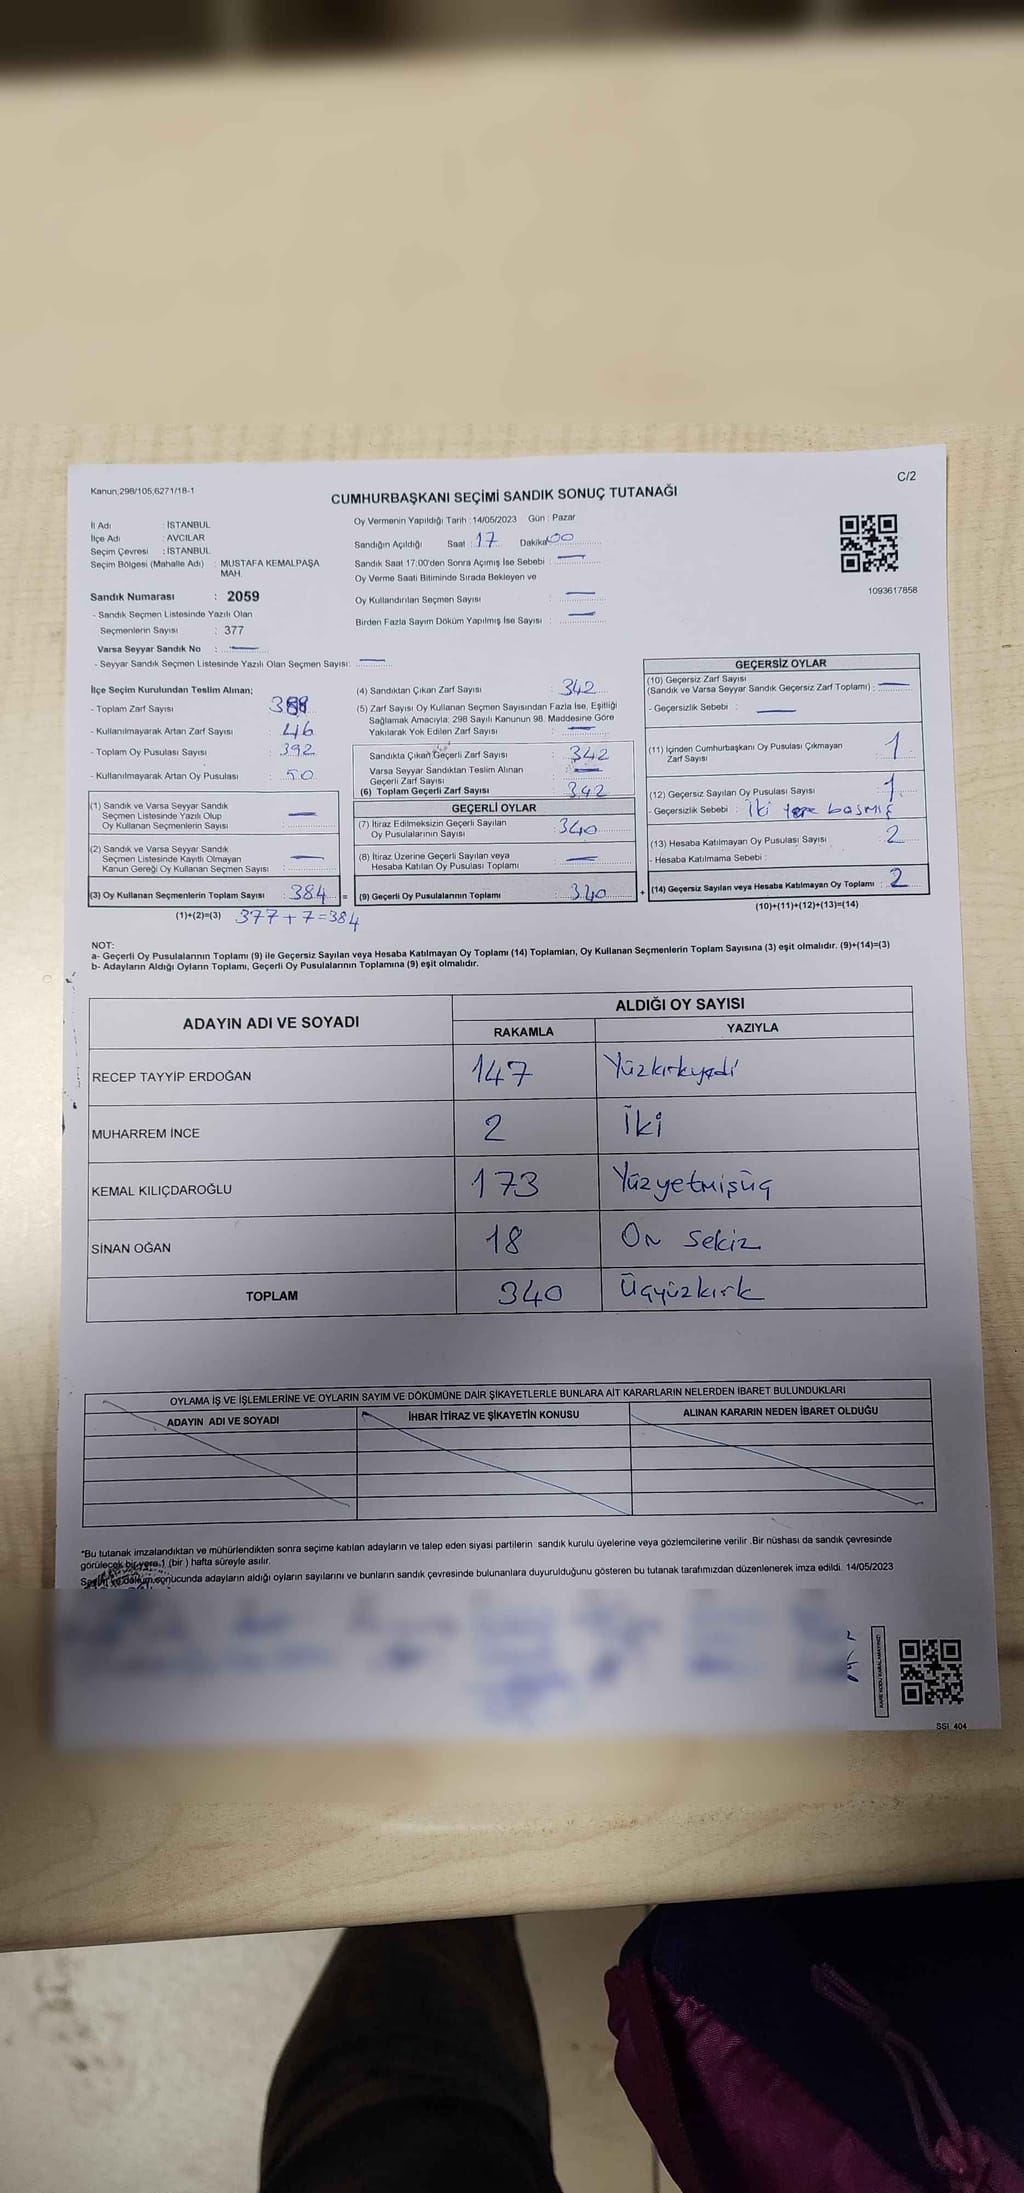 Kanun;298/105,6271/18-1
C/2
CUMHURBAŞKANI SEÇİMİ SANDIK SONUÇ TUTANAĞI
İl Adı : İSTANBUL
İlçe Adı : AVCILAR
Seçim Çevresi : İSTANBUL
Seçim Bölgesi (Mahalle Adı) : MUSTAFA KEMALPAŞA MAH.
Sandık Numarası : 2059
- Sandık Seçmen Listesinde Yazılı Olan
Seçmenlerin Sayısı : 377
Varsa Seyyar Sandık No : —
- Seyyar Sandık Seçmen Listesinde Yazılı Olan Seçmen Sayısı: —
Oy Vermenin Yapıldığı Tarih : 14/05/2023 Gün : Pazar
Sandığın Açıldığı Saat : 17 Dakika 00
Sandık Saat 17:00'den Sonra Açımış İse Sebebi : —
Oy Verme Saati Bitiminde Sırada Bekleyen ve
Oy Kullandırılan Seçmen Sayısı : —
Birden Fazla Sayım Döküm Yapılmış İse Sayısı : —
1093617858
İlçe Seçim Kurulundan Teslim Alınan;
- Toplam Zarf Sayısı
- Kullanılmayarak Artan Zarf Sayısı : 46
- Toplam Oy Pusulası Sayısı : 392
- Kullanılmayarak Artan Oy Pusulası : 50
(1) Sandık ve Varsa Seyyar Sandık
Seçmen Listesinde Yazılı Olup
Oy Kullanan Seçmenlerin Sayısı : —
(2) Sandık ve Varsa Seyyar Sandık
Seçmen Listesinde Kayıtlı Olmayan
Kanun Gereği Oy Kullanan Seçmen Sayısı : —
(3) Oy Kullanan Seçmenlerin Toplam Sayısı : 384 =
(1)+(2)=(3) 377+7=384
(4) Sandıktan Çıkan Zarf Sayısı : 342
(5) Zarf Sayısı Oy Kullanan Seçmen Sayısından Fazla İse, Eşitliği
Sağlamak Amacıyla; 298 Sayılı Kanunun 98. Maddesine Göre
Yakılarak Yok Edilen Zarf Sayısı : —
Sandıkta Çıkan Geçerli Zarf Sayısı : 342
Varsa Seyyar Sandıktan Teslim Alınan
Geçerli Zarf Sayısı : —
(6) Toplam Geçerli Zarf Sayısı : 342
GEÇERLİ OYLAR
(7) İtiraz Edilmeksizin Geçerli Sayılan
Oy Pusulalarının Sayısı : 340
(8) İtiraz Üzerine Geçerli Sayılan veya
Hesaba Katılan Oy Pusulası Toplamı : —
(9) Geçerli Oy Pusulalarının Toplamı : 340 +
GEÇERSİZ OYLAR
(10) Geçersiz Zarf Sayısı
(Sandık ve Varsa Seyyar Sandık Geçersiz Zarf Toplamı) : —
- Geçersizlik Sebebi : —
(11) İçinden Cumhurbaşkanı Oy Pusulası Çıkmayan
Zarf Sayısı : 1
(12) Geçersiz Sayılan Oy Pusulası Sayısı : 1
- Geçersizlik Sebebi : İki yere basmış
(13) Hesaba Katılmayan Oy Pusulası Sayısı : 2
- Hesaba Katılmama Sebebi :
(14) Geçersiz Sayılan veya Hesaba Katılmayan Oy Toplamı : 2
(10)+(11)+(12)+(13)=(14)
NOT:
a- Geçerli Oy Pusulalarının Toplamı (9) ile Geçersiz Sayılan veya Hesaba Katılmayan Oy Toplamı (14) Toplamları, Oy Kullanan Seçmenlerin Toplam Sayısına (3) eşit olmalıdır. (9)+(14)=(3)
b- Adayların Aldığı Oyların Toplamı, Geçerli Oy Pusulalarının Toplamına (9) eşit olmalıdır.
ADAYIN ADI VE SOYADI ALDIĞI OY SAYISI
RAKAMLA YAZIYLA
RECEP TAYYİP ERDOĞAN 147 Yüzkırkyedi
MUHARREM İNCE 2 İki
KEMAL KILIÇDAROĞLU 173 Yüzyetmişüç
SİNAN OĞAN 18 On sekiz
TOPLAM 340 Üçyüzkırk
OYLAMA İŞ VE İŞLEMLERİNE VE OYLARIN SAYIM VE DÖKÜMÜNE DAİR ŞİKAYETLERLE BUNLARA AİT KARARLARIN NELERDEN İBARET BULUNDUKLARI
ADAYIN ADI VE SOYADI İHBAR İTİRAZ VE ŞİKAYETİN KONUSU ALINAN KARARIN NEDEN İBARET OLDUĞU
*Bu tutanak imzalandıktan ve mühürlendikten sonra seçime katılan adayların ve talep eden siyasi partilerin sandık kurulu üyelerine veya gözlemcilerine verilir .Bir nüshası da sandık çevresinde
görülecek bir yere 1 (bir ) hafta süreyle asılır.
Sayım ve döküm sonucunda adayların aldığı oyların sayılarını ve bunların sandık çevresinde bulunanlara duyurulduğunu gösteren bu tutanak tarafımızdan düzenlenerek imza edildi. 14/05/2023
KARE KODU KARALAMAYINIZ!
SSI_404